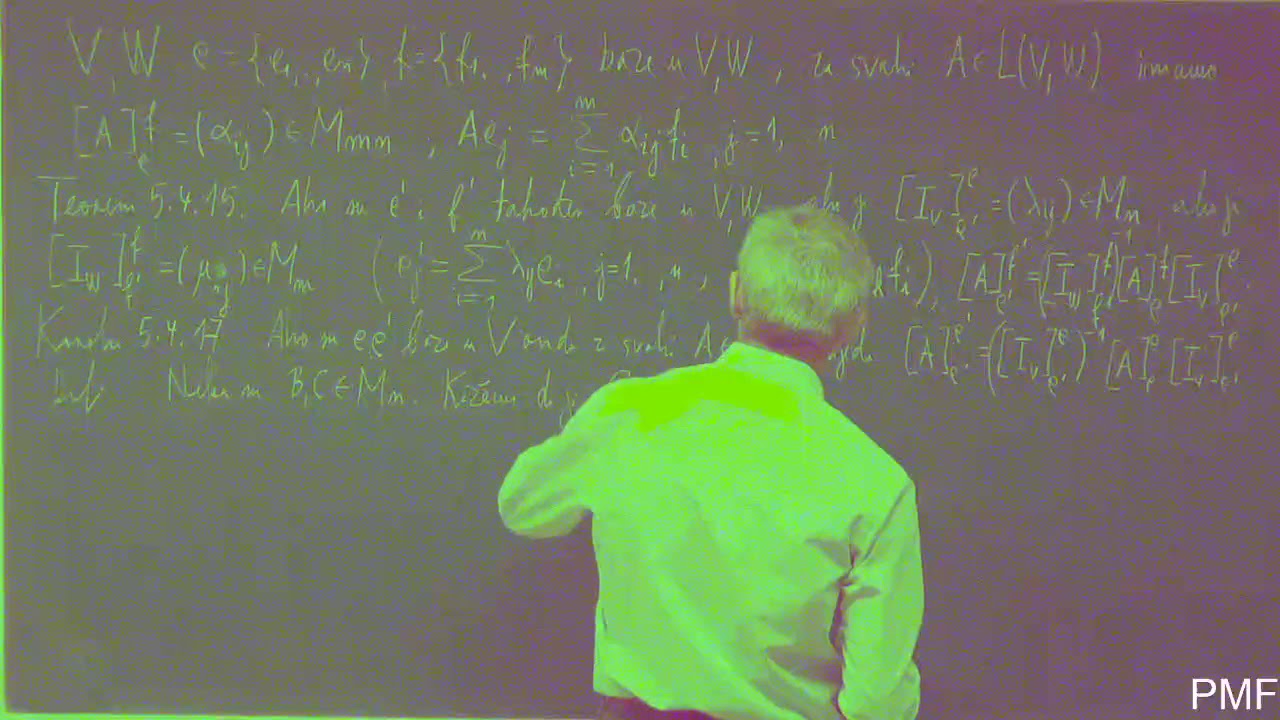 V, W e = {e₁, ., eₙ} f = {f₁, , fₘ} baze u V, W , za svaki A ∈ L(V, W) imamo
[A]ₑᶠ = (αᵢⱼ) ∈ Mₘₙ , Aeⱼ = ∑ᵢ₌₁ᵐ αᵢⱼfᵢ , j = 1, n
Teorem 5.4.15. Ako su e' i f' također baze u V, W ako je [I_V]_{e'}^{e} = (λᵢⱼ) ∈ Mₙ ako je
[I_W]_{f'}^{f} = (μᵢⱼ) ∈ Mₘ (eⱼ' = ∑ᵢ₌₁ⁿ λᵢⱼeᵢ , j = 1, , n , fᵢ), [A]_{e'}^{f'} = ([I_W]_{f'}^{f})⁻¹ [A]_{e}^{f} [I_V]_{e'}^{e}.
5.4.17 Ako su e, e' baze u V onda za svaki A [A]_{e'}^{e'} = ([I_V]_{e'}^{e})⁻¹ [A]_{e}^{e} [I_V]_{e'}^{e}
Def Neka su B, C ∈ Mₙ. Kažemo da je
PMF